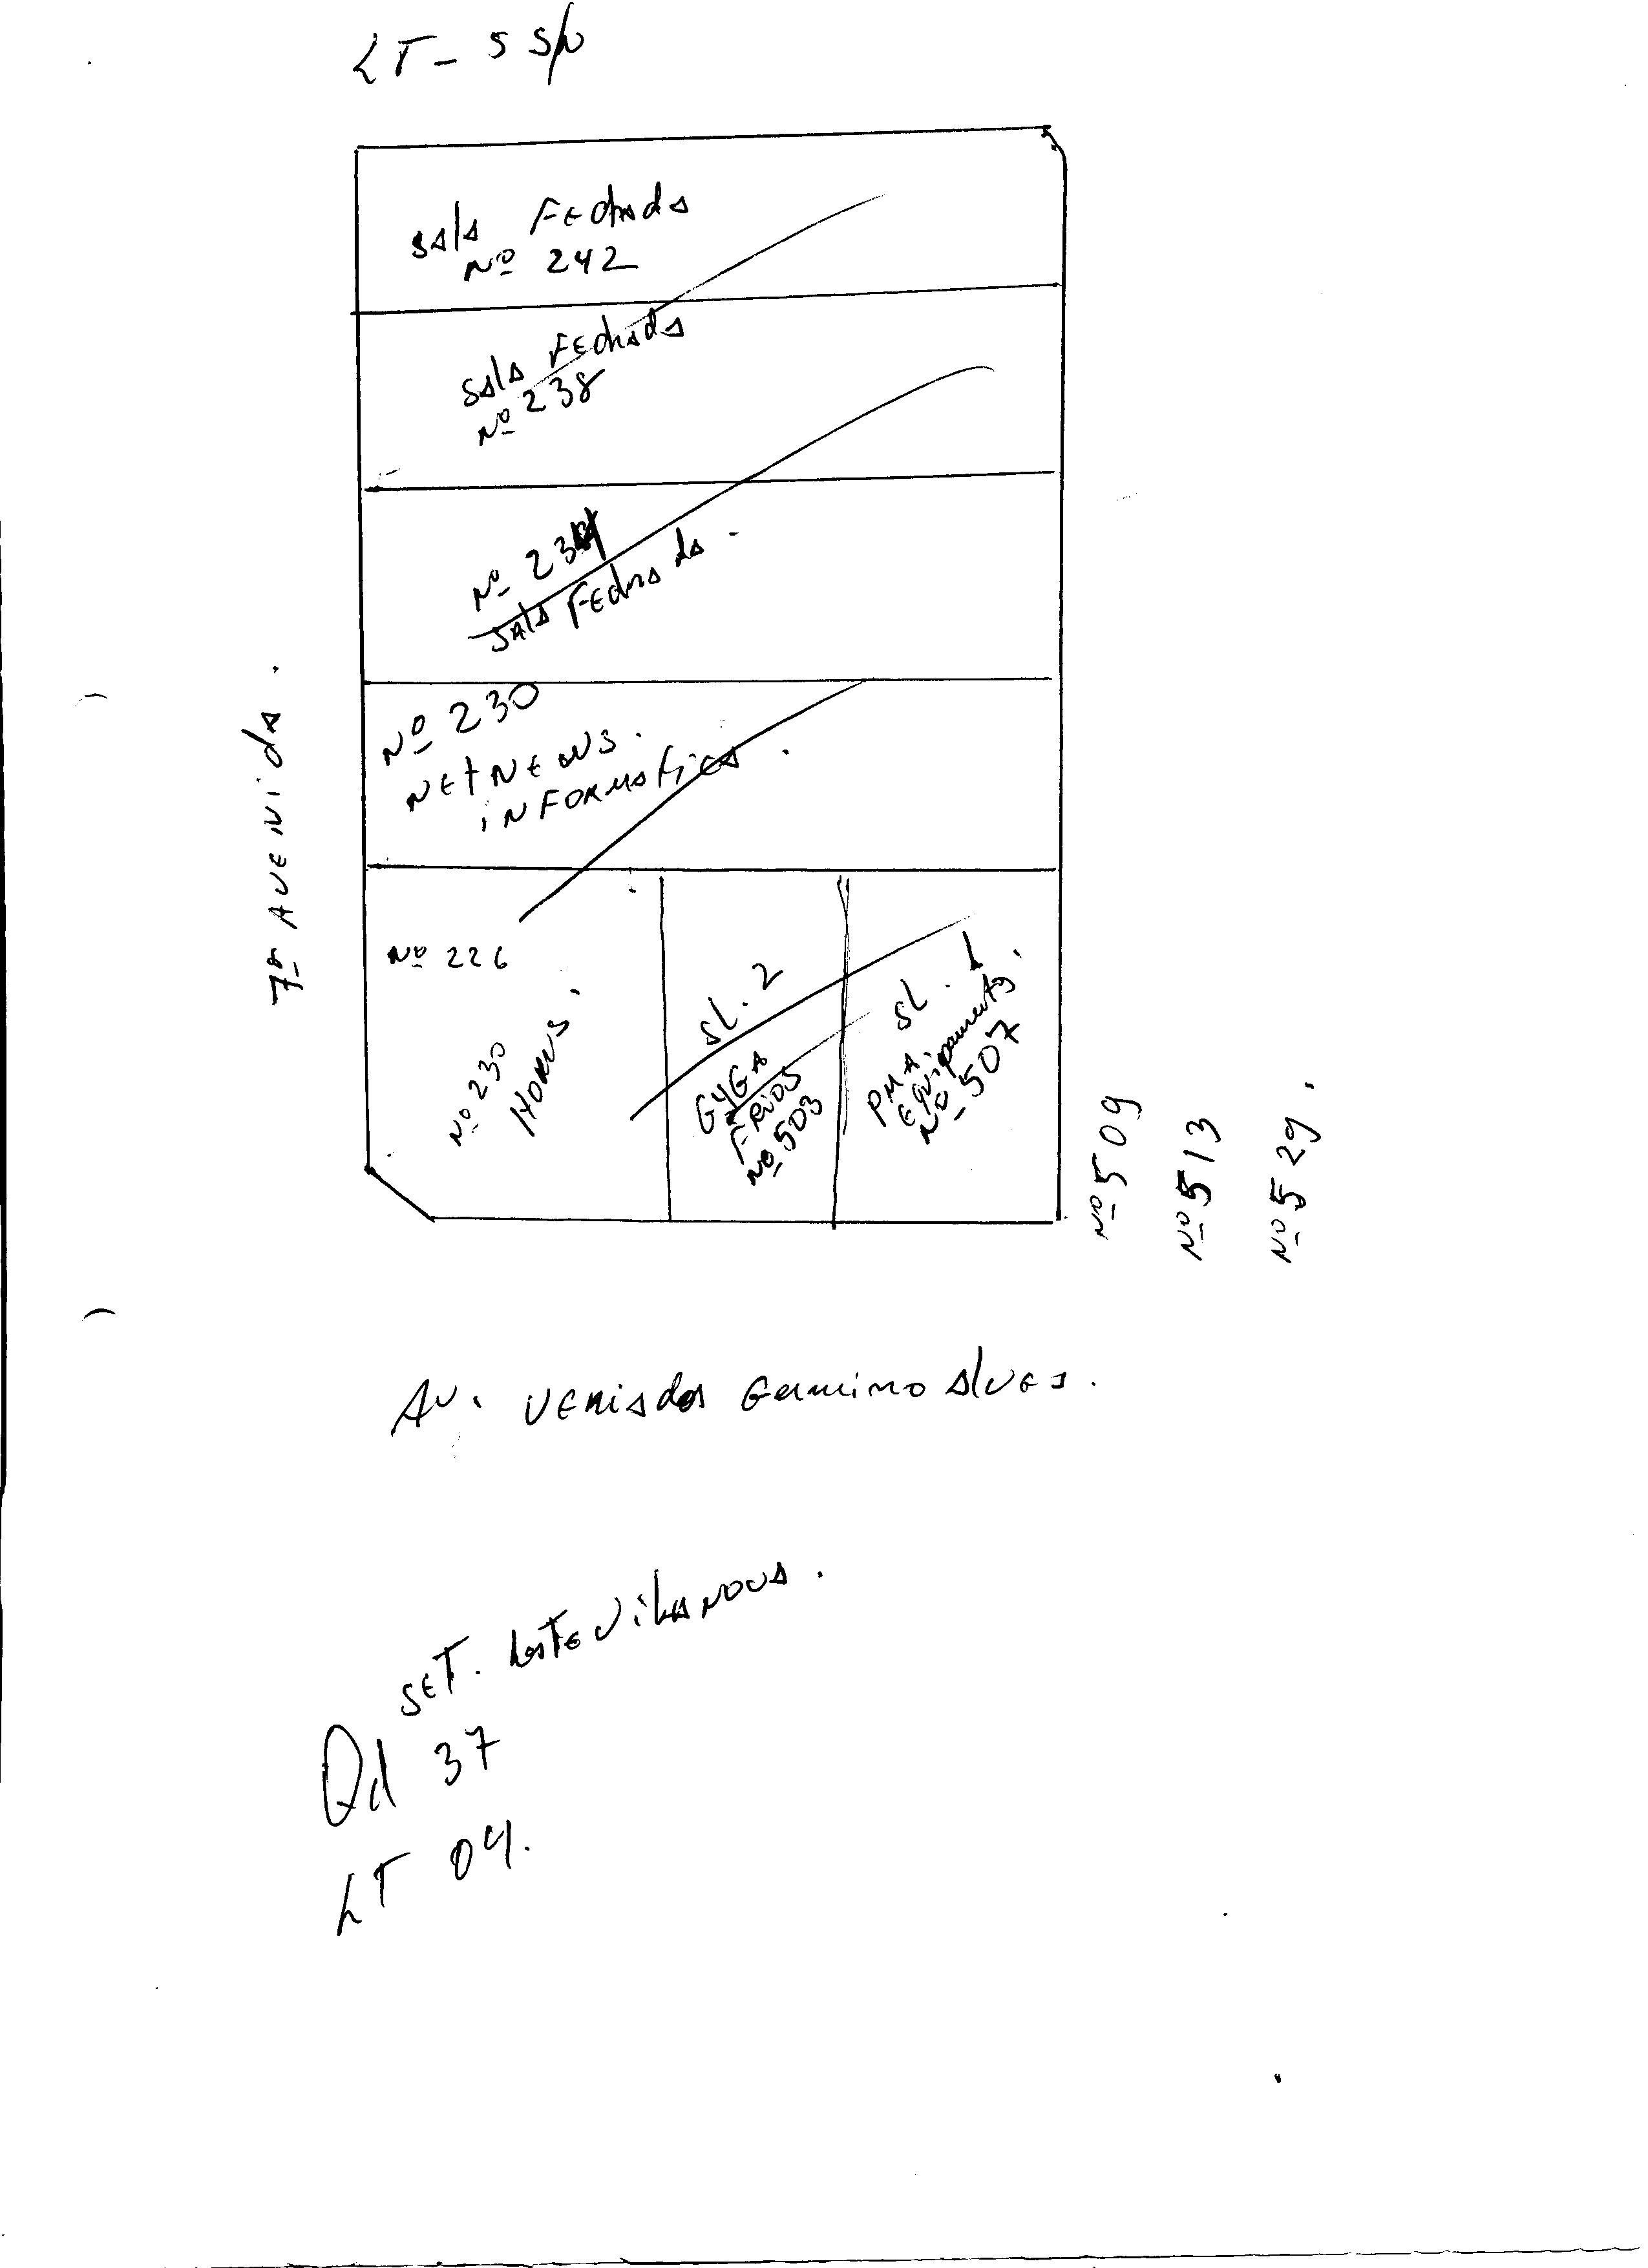 LT - 5 S/N
sala Fechada
Nº 242
sala Fechada
Nº 238
Nº 234
sala Fechada.
Nº 230
NetNews.
iNFORMAtica.
7ª AVENida.
Nº 226
Nº 230
HORUS.
SL. 2
GYGA
FRIOS
Nº 503
SL. 1
PMA.
Equipamentos.
Nº 507
Nº 509
Nº 513
Nº 529.
AV. VEREadoR GERMiNo Alves.
SET. LESTE ViLA NOVA.
Qd 37
LT 04.